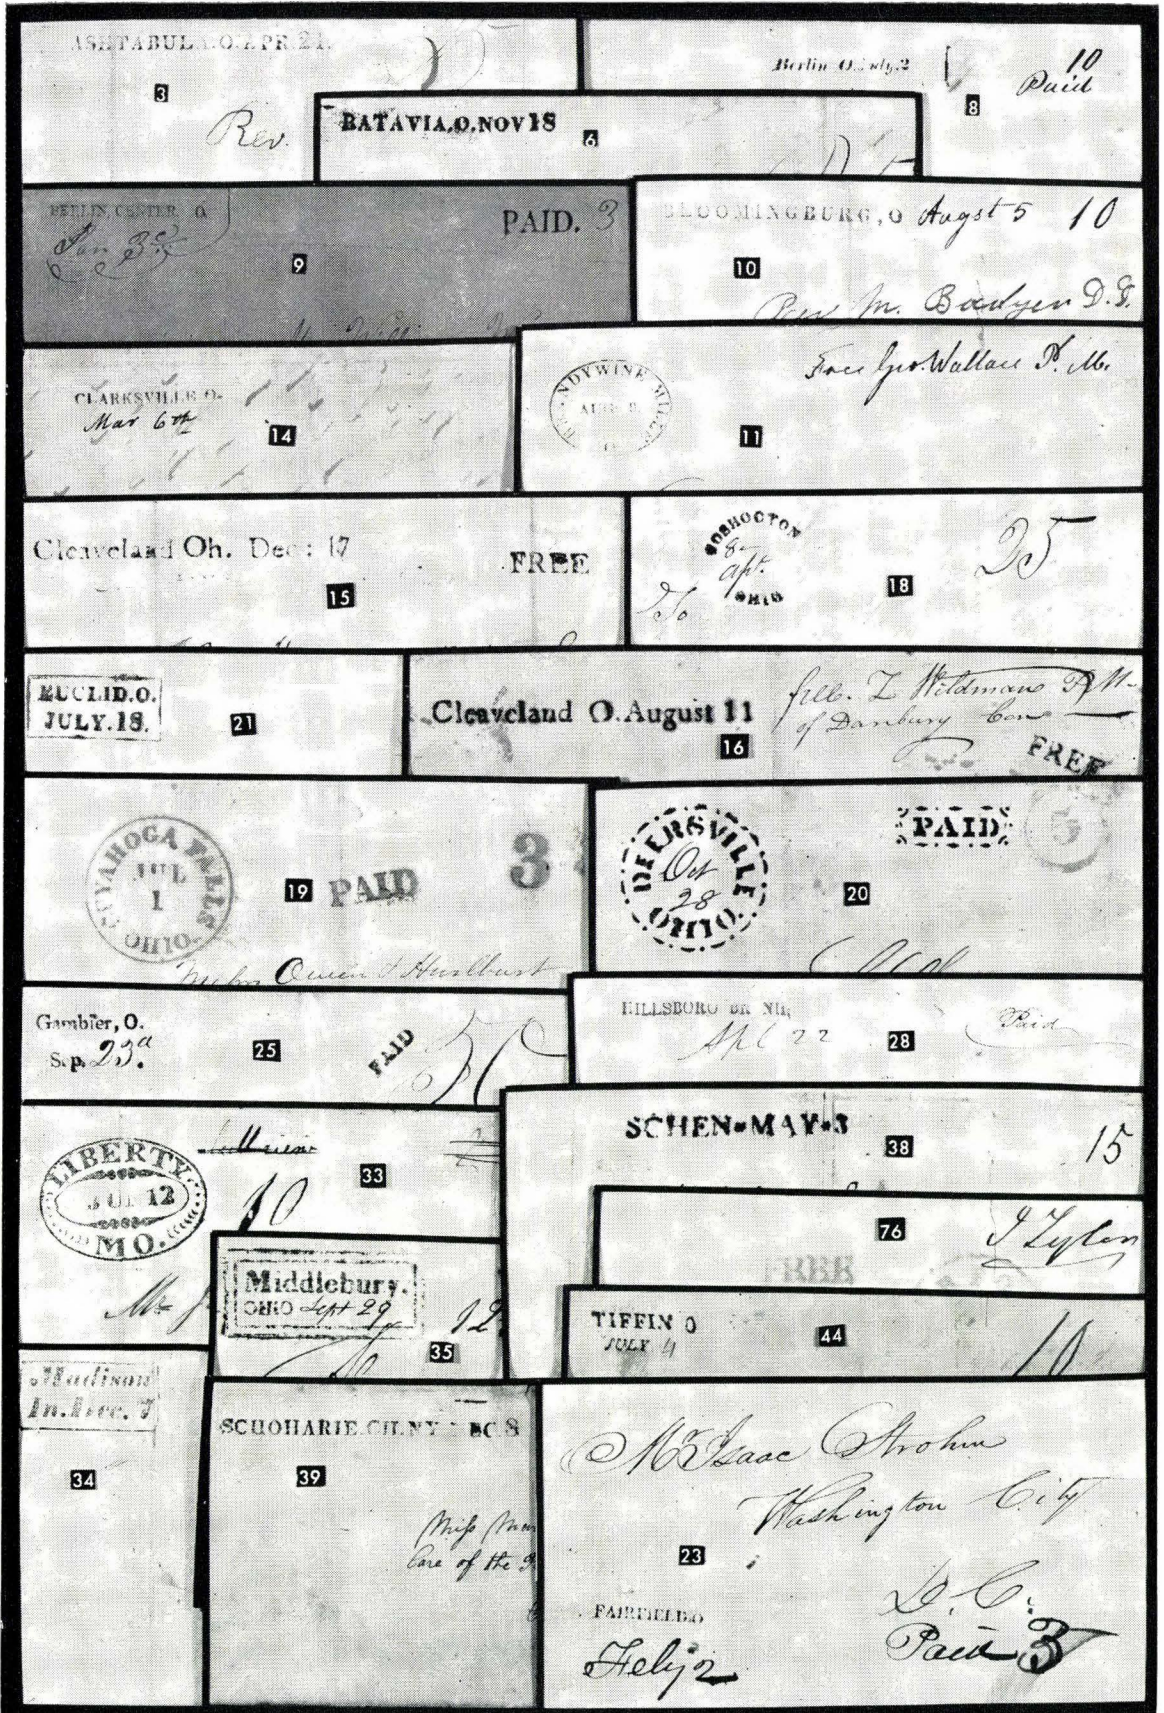 ASHTABULA.O.APR.21.
3
Rev.
Berlin O. July.2
8
10
Paid
BATAVIA.O.NOV18
6
BERLIN CENTER O.
Jan 3rd
9
PAID. 3
BLOOMINGBURG, O Augst 5 10
10
Rev M. Badger D.
CLARKSVILLE O.
Mar 6th
14
NDYWINE MILLS
AUG
O
11
Free Geo. Wallace P. M.
Cleaveland Oh. Dec: 17
FREE
15
COSHOCTON
8
Apr.
OHIO
To
18
25
EUCLID.O.
JULY.18.
21
Cleaveland O. August 11
16
free. Z Wildman P.M.
of Danbury Con
FREE
CUYAHOGA FALLS
JUL
1
OHIO.
19
PAID
3
Owen & Hurlburt
DEERSVILLE
Oct
28
OHIO.
PAID
5
20
Gambier, O.
Sep. 23d.
25
PAID
HILLSBORO BR NH,
Apl 22
28
Paid
LIBERTY
JUL 12
MO.
33
10
Mr
SCHEN•MAY•3
38
15
76
J Tyler
FREE
Middlebury.
OHIO Sept 29
35
12
TIFFIN O
JULY 4
44
10
Madison
In. Dec. 7
34
SCHOHARIE.CH.NY DEC 8
39
Miss
Care of the
Mr Isaac Strohm
Washington City
23
D. C.
FAIRFIELD.O
Feby 2
Paid 3